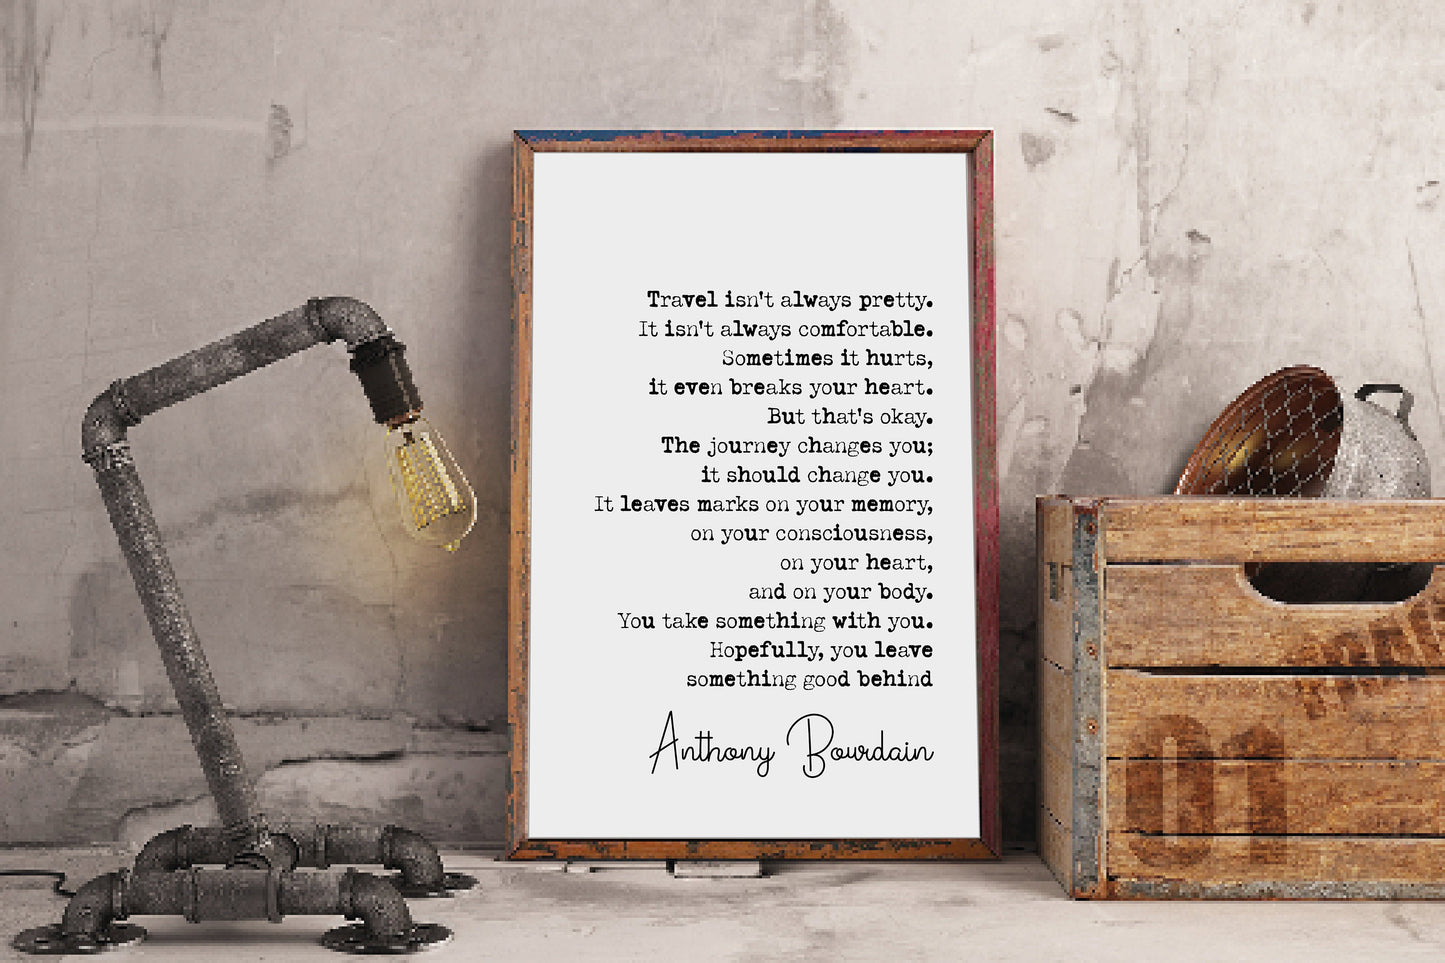 Travel isn't always pretty.
It isn't always comfortable.
Sometimes it hurts,
it even breaks your heart.
But that's okay.
The journey changes you;
it should change you.
It leaves marks on your memory,
on your consciousness,
on your heart,
and on your body.
You take something with you.
Hopefully, you leave
something good behind
Anthony Bourdain
01